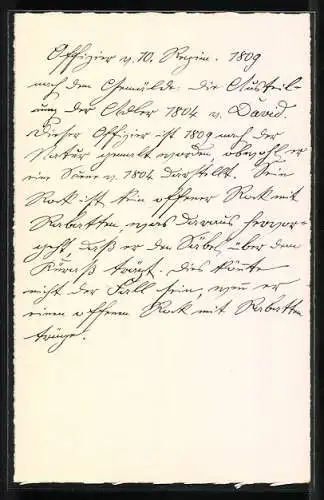 Offizier v. 10. Regim. 1809
nach dem Gemälde: die Austeil-
ung der Adler 1804 v. David.
Dieser Offizier ist 1809 nach der
Natur gemalt worden, obwohl er
eine Scene v. 1804 darstellt. Sein
Rock ist kein offener Rock mit
Rabatten, was daraus hervor-
geht, daß er den Säbel über dem
Küraß trägt. Dies könte
nicht der Fall sein, wenn er
einen offenen Rock mit Rabatten
trüge.